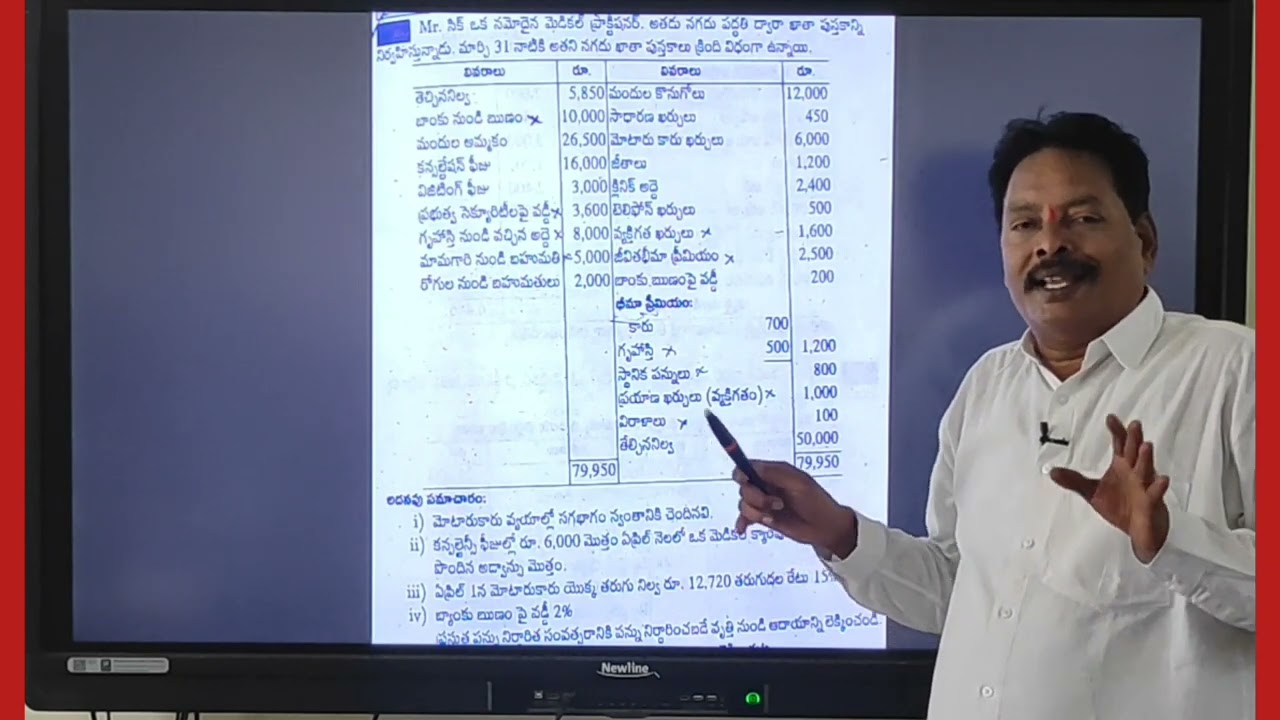 Mr. సిక్ ఒక నమోదైన మెడికల్ ప్రాక్టిషనర్. అతడు నగదు పద్ధతి ద్వారా ఖాతా పుస్తకాన్ని
నిర్వహిస్తున్నాడు. మార్చి 31 నాటికి అతని నగదు ఖాతా పుస్తకాలు క్రింది విధంగా ఉన్నాయి.
వివరాలు రూ. వివరాలు రూ.
తెచ్చిననిల్వ 5,850 మందుల కొనుగోలు 12,000
బాంకు నుండి ఋణం × 10,000 సాధారణ ఖర్చులు 450
మందుల అమ్మకం 26,500 మోటారు కారు ఖర్చులు 6,000
కన్సల్టేషన్ ఫీజు 16,000 జీతాలు 1,200
విజిటింగ్ ఫీజు 3,000 క్లినిక్ అద్దె 2,400
ప్రభుత్వ సెక్యూరిటీలపై వడ్డీ × 3,600 టెలిఫోన్ ఖర్చులు 500
గృహాస్తి నుండి వచ్చిన అద్దె × 8,000 వ్యక్తిగత ఖర్చులు × 1,600
మామగారి నుండి బహుమతి × 5,000 జీవితభీమా ప్రీమియం × 2,500
రోగుల నుండి బహుమతులు 2,000 బాంకు ఋణంపై వడ్డీ 200
భీమా ప్రీమియం:
కారు 700
గృహాస్తి × 500 1,200
స్థానిక పన్నులు × 800
ప్రయాణ ఖర్చులు (వ్యక్తిగతం) × 1,000
విరాళాలు × 100
తేల్చిననిల్వ 50,000
79,950 79,950
అదనపు సమాచారం:
i) మోటారుకారు వ్యయాల్లో సగభాగం స్వంతానికి చెందినవి.
ii) కన్సల్టెన్సీ ఫీజుల్లో రూ. 6,000 మొత్తం ఏప్రిల్ నెలలో ఒక మెడికల్
పొందిన అడ్వాన్సు మొత్తం.
iii) ఏప్రిల్ 1న మోటారుకారు యొక్క తరుగు నిల్వ రూ. 12,720 తరుగుదల రేటు 15%
iv) బ్యాంకు ఋణం పై వడ్డీ 2%
ప్రస్తుత పన్ను నిర్ధారిత సంవత్సరానికి పన్ను నిర్ధారించబడే వృత్తి నుండి ఆదాయాన్ని లెక్కించండి.
Newline